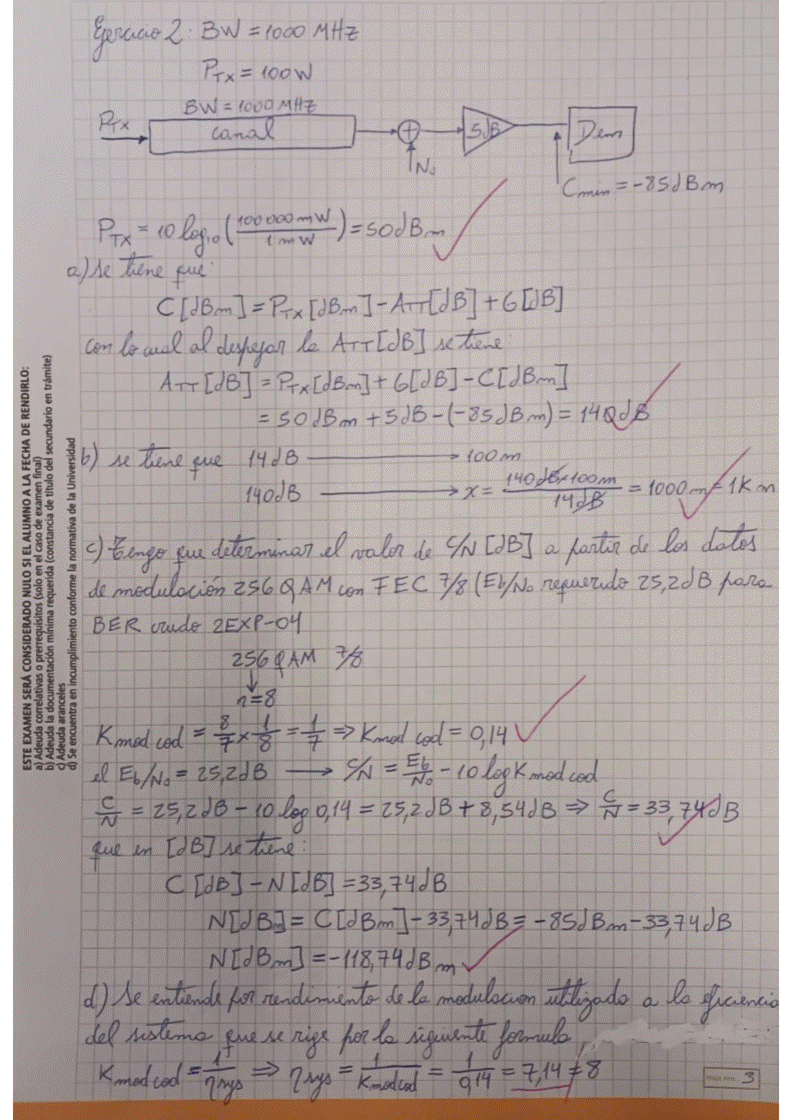 Ejercicio 2: BW = 1000 MHz
PTX = 100W
BW = 1000 MHz
PTX
canal
5dB
Dem
N₀
Cmin = -85dBm
PTX = 10 log₁₀ (100000 mW / 1 mW) = 50dBm
a) Se tiene que:
C[dBm] = PTX[dBm] - ATT[dB] + G[dB]
con lo cual al despejar la ATT[dB] se tiene
ATT[dB] = PTX[dBm] + G[dB] - C[dBm]
= 50dBm + 5dB - (-85dBm) = 140dB
b) se tiene que 14dB → 100m
140dB → x = 140dB×100m / 14dB = 1000m = 1Km
c) Tengo que determinar el valor de C/N [dB] a partir de los datos
de modulación 256 QAM con FEC 7/8 (Eb/N₀ requerido 25,2dB para
BER crudo 2EXP-04
256 QAM 7/8
n=8
Kmod cod = 8/7 × 1/8 = 1/7 ⇒ Kmod cod = 0,14
el Eb/N₀ = 25,2dB → C/N = Eb/N₀ - 10 log Kmod cod
C/N = 25,2dB - 10 log 0,14 = 25,2dB + 8,54dB ⇒ C/N = 33,74dB
que en [dB] se tiene:
C[dB] - N[dB] = 33,74dB
N[dB] = C[dBm] - 33,74dB = -85dBm - 33,74dB
N[dBm] = -118,74dBm
d) Se entiende por rendimiento de la modulacion utilizado a la eficiencia
del sistema que se rige por la siguiente formula,
Kmod cod = 1/ηsys ⇒ ηsys = 1/Kmodcod = 1/0,14 = 7,14 ≠ 8
3
ESTE EXAMEN SERÁ CONSIDERADO NULO SI EL ALUMNO A LA FECHA DE RENDIRLO:
a) Adeuda correlativas o prerrequisitos (solo en el caso de examen final)
b) Adeuda la documentación mínima requerida (constancia de título del secundario en trámite)
c) Adeuda aranceles
d) Se encuentra en incumplimiento conforme la normativa de la Universidad